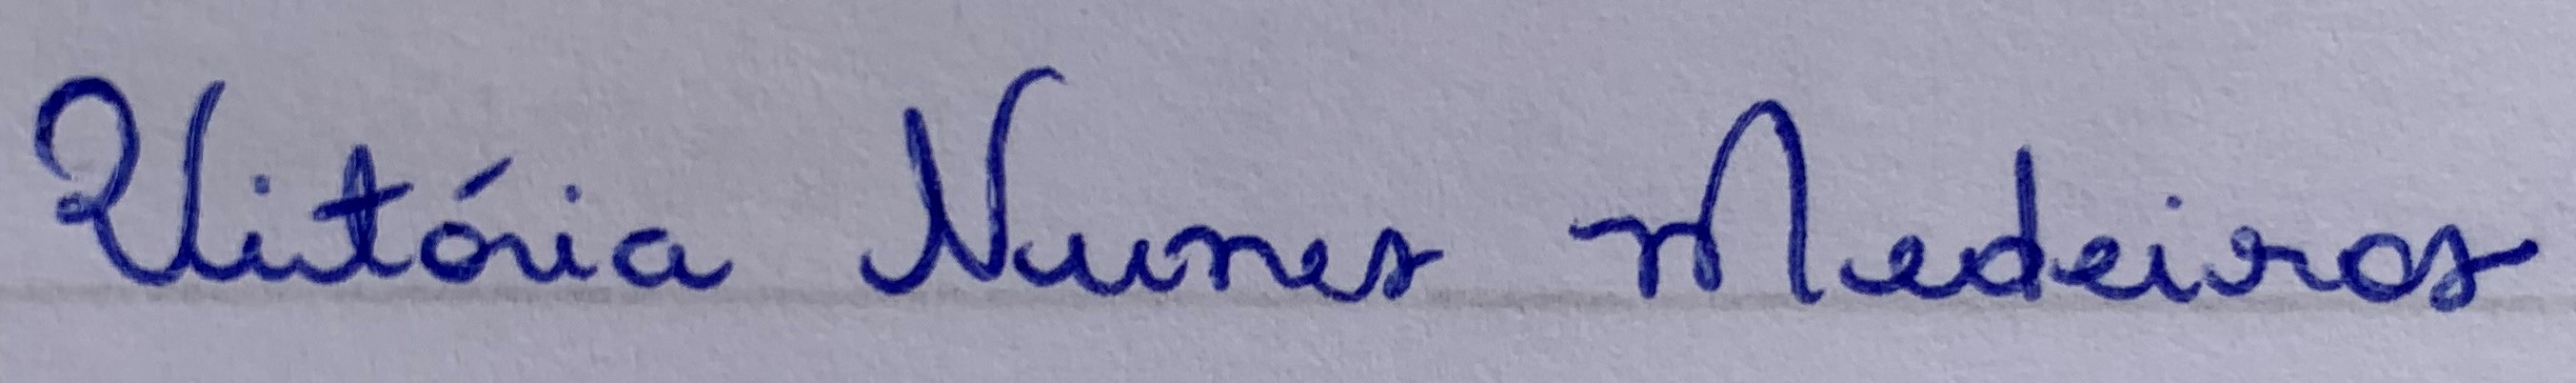 Vitória Nunes Medeiros